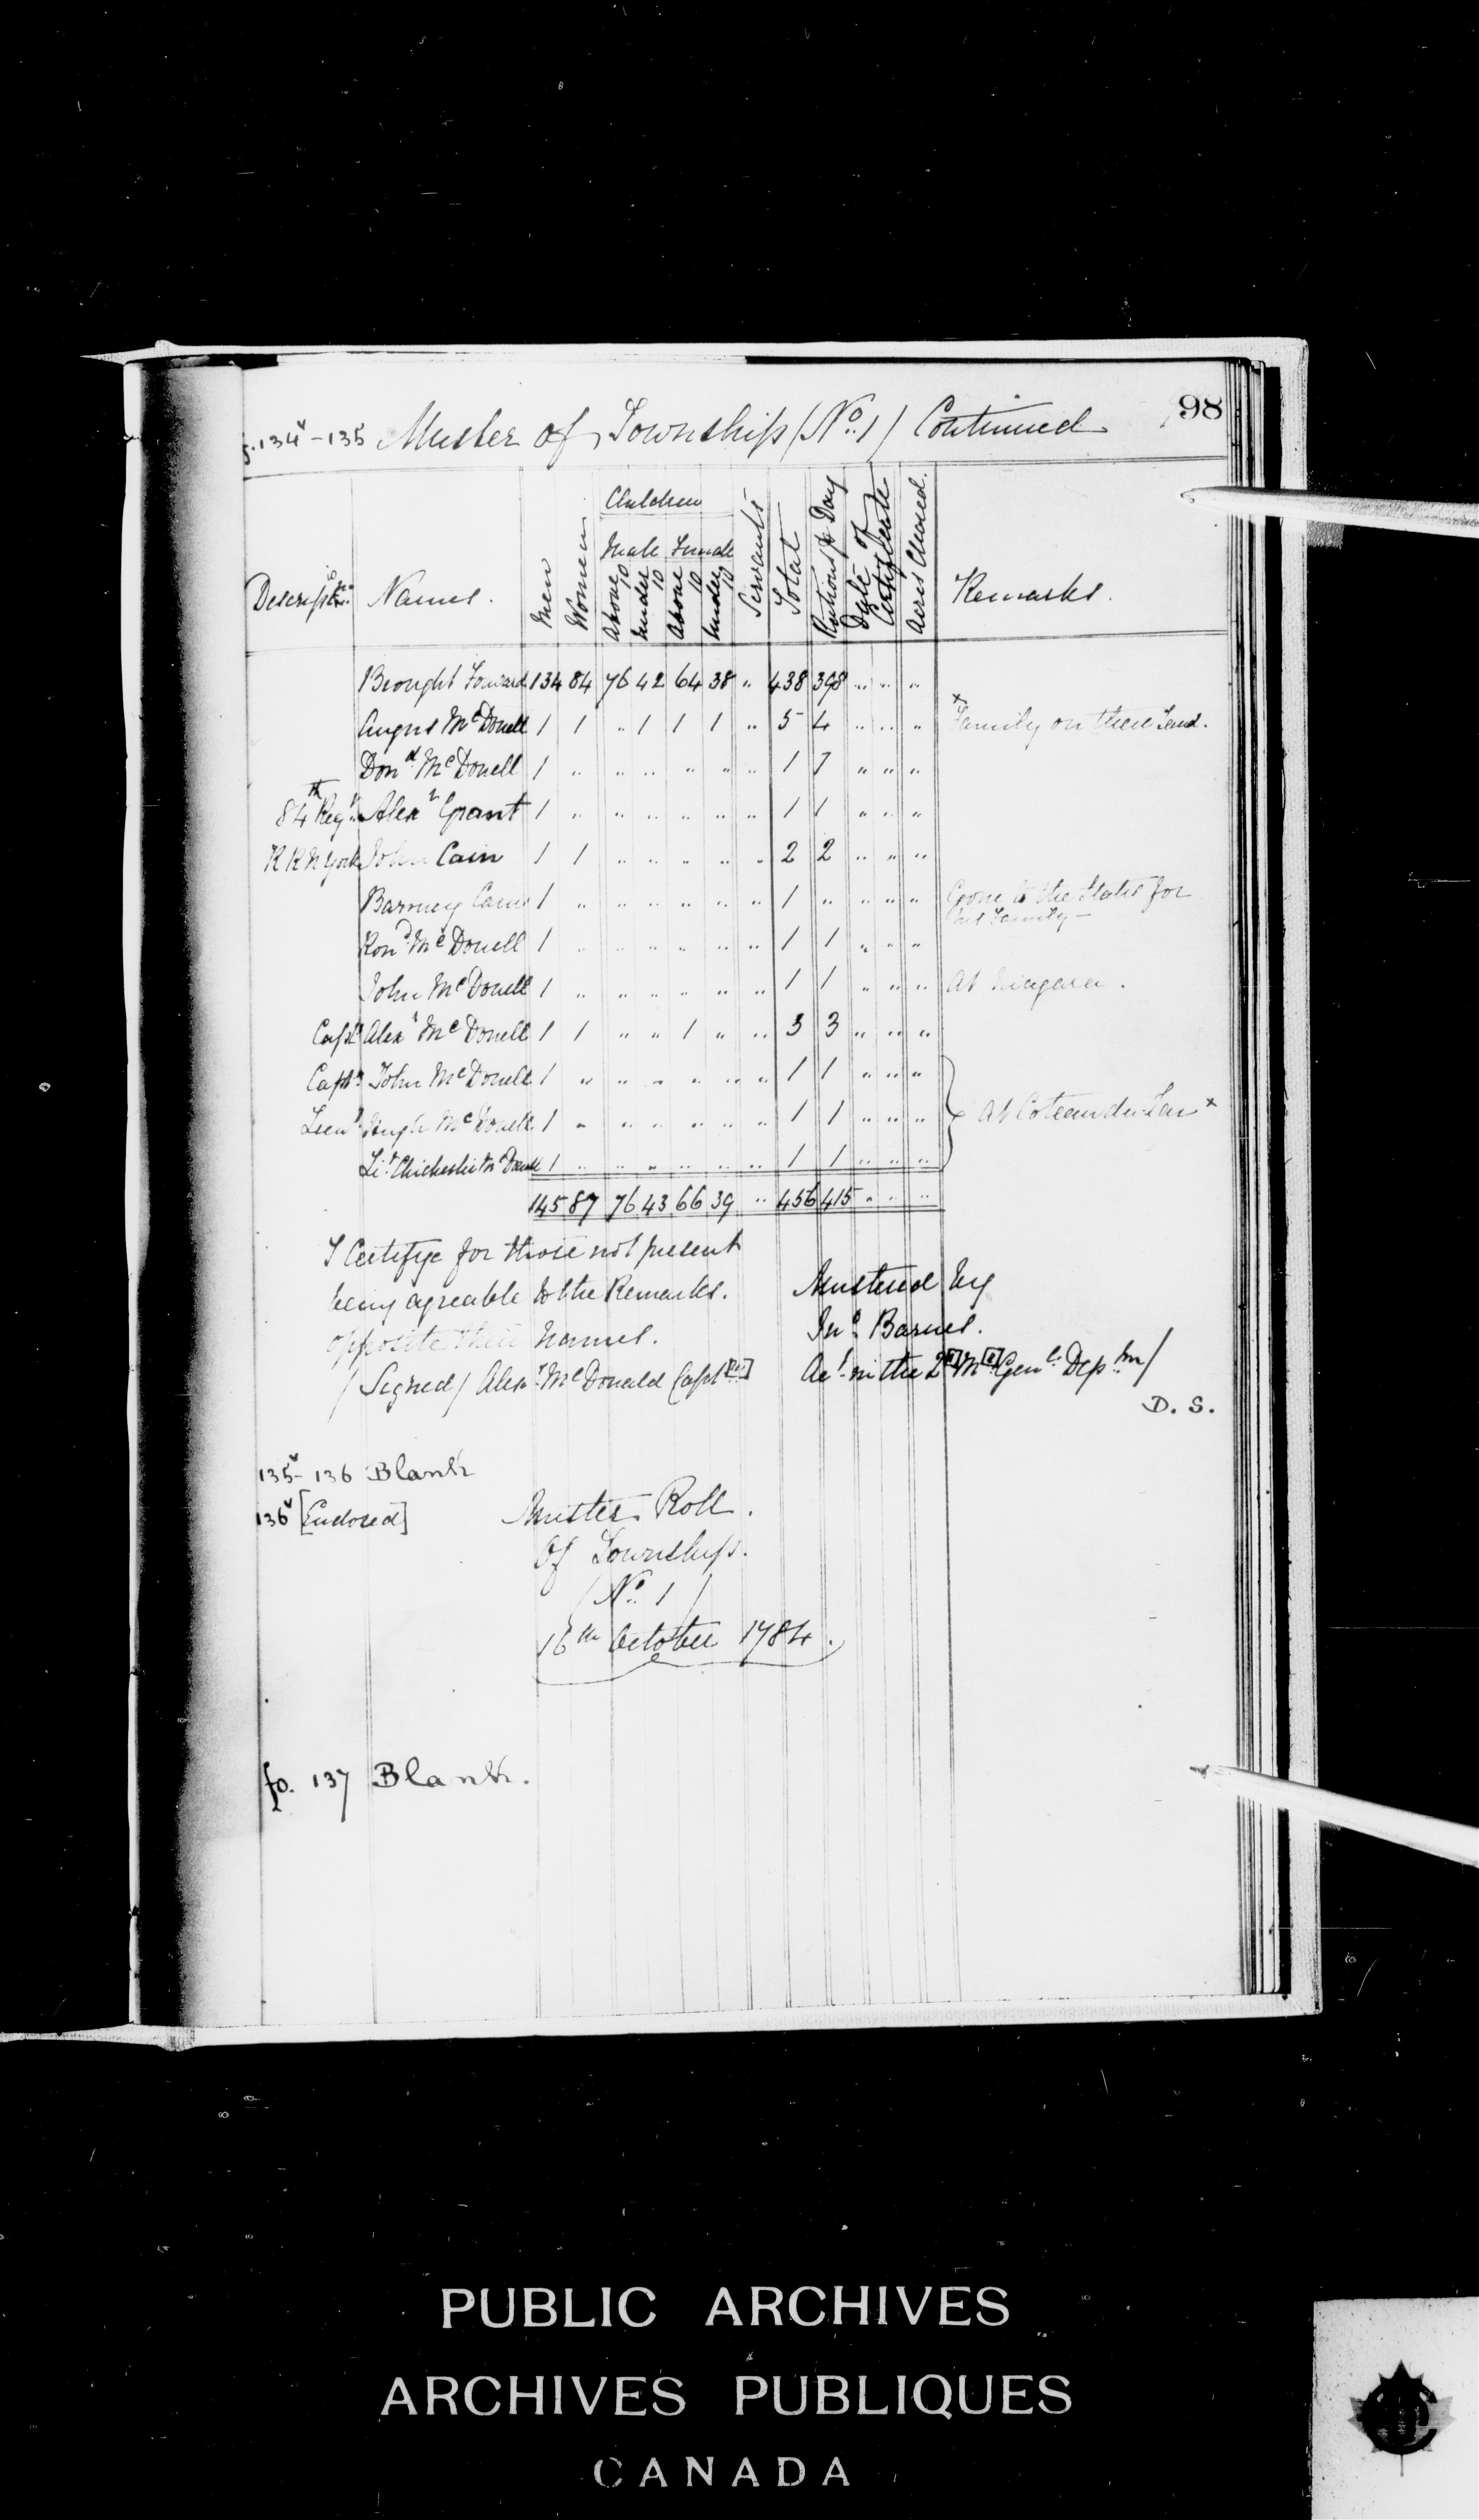 98
f. 134v-135 Muster of Township (No. 1) Continued
Children
Male Female
Description Names. Men Women Above 10 Under 10 Above 10 Under 10 Servants Total Rations p Day Date of Certificate Acres Cleared. Remarks.
Brought Forward 134 84 76 42 64 38 " 438 398 " " "
Angus McDonell 1 1 " 1 1 1 " 5 4 " " " x Family on their Land.
Dond McDonell 1 " " " " " " 1 1 " " "
84th Regt. Alexr Grant 1 " " " " " " 1 1 " " "
R R N York John Cain 1 1 " " " " " 2 2 " " "
Barney Cain 1 " " " " " " 1 " " " " Gone to the States for
his Family —
Rond McDonell 1 " " " " " " 1 1 " " "
John McDonell 1 " " " " " " 1 1 " " " At Niagara.
Capt Alexr McDonell 1 1 " " 1 " " 3 3 " " "
Captn John McDonell 1 " " " " " " 1 1 " " "
Lieut Hugh McDonell 1 " " " " " " 1 1 " " " At Coteau du Lac x
Lit. Chichester McDonell 1 " " " " " " 1 1 " " "
145 87 76 43 66 39 " 456 415 " " "
I Certifye for those not present
being agreable to the Remarks.
opposite their Names.
(Signed) Alexr McDonald Capt
Mustered by
Jno. Barnes.
At. in the 2[r] M[r] Genl. Dep.tm/
D. S.
135v-136 Blank
136v [Endorsed] Muster Roll.
Of Township.
(No. 1)
16th October 1784.
fo. 137 Blank.
PUBLIC ARCHIVES
ARCHIVES PUBLIQUES
CANADA